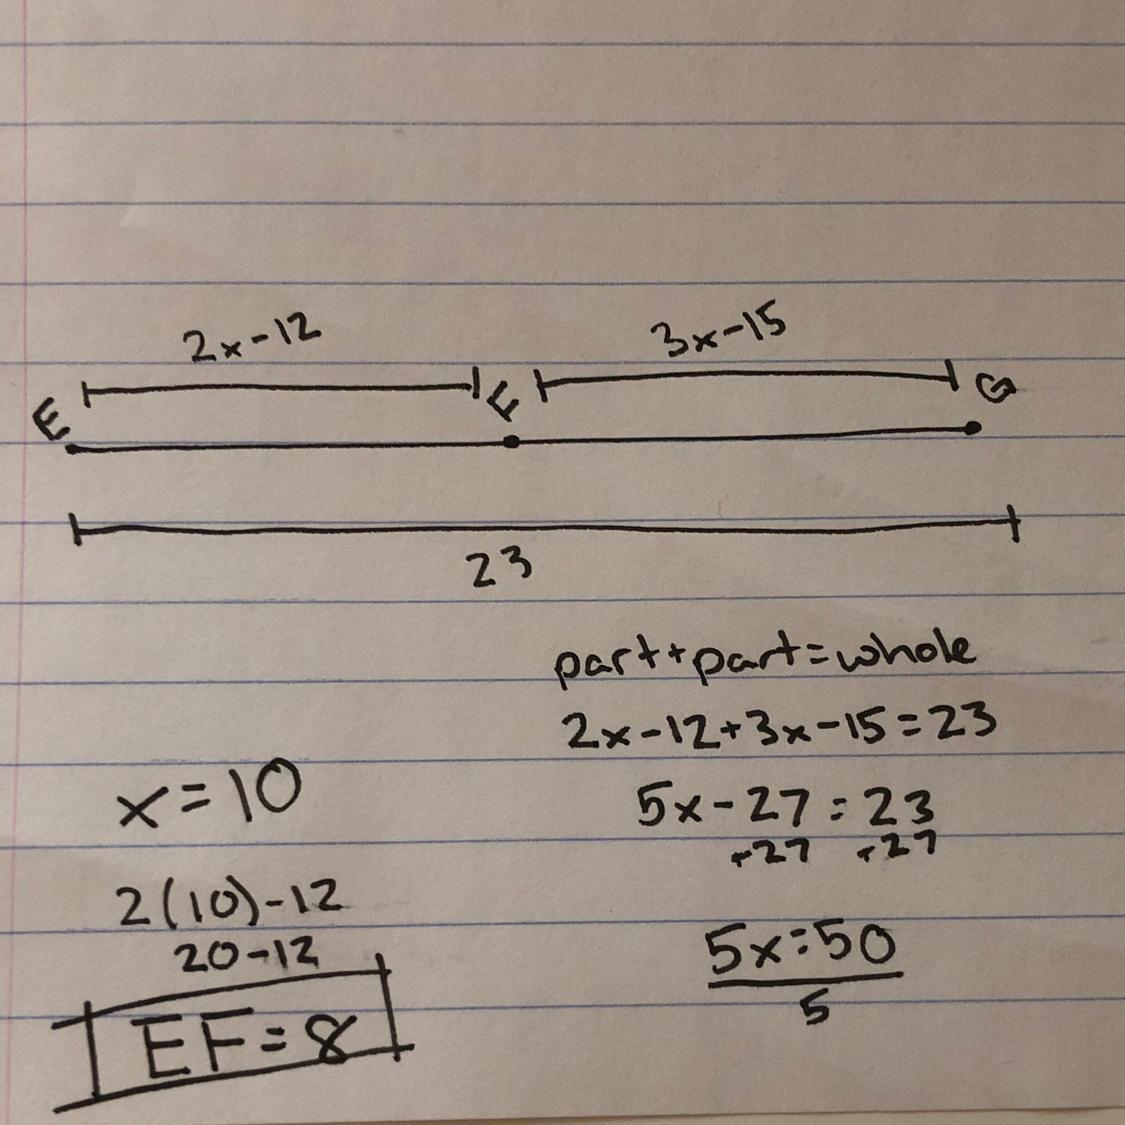 2x-12
3x-15
E
F
G
23
part+part=whole
2x-12+3x-15=23
5x-27=23
+27 +27
5x=50
5
x=10
2(10)-12
20-12
EF=8